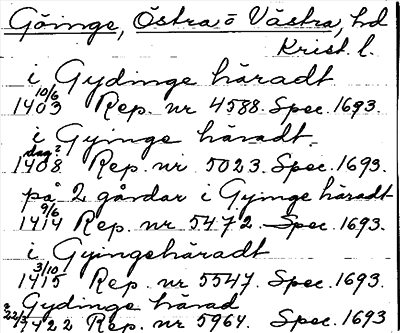 Göinge, Östra o Västra, hd
Krist. l.
i Gydinge häradt
10/6
1403 Rep. nr 4588. Spec. 1693.
i Gyinge häradt.
dag?
1408 Rep. nr 5023. Spec. 1693.
på 2 gårdar i Gyinge häradt
9/6
1414 Rep. nr 5472. Spec. 1693.
i Gyingehäradt
3/10
1415 Rep. nr 5547. Spec. 1693.
? Gydinge härad
22/3 1422 Rep. nr 5964. Spec. 1693